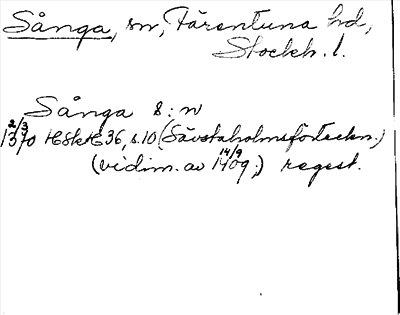 Sånga, sn, Färentuna hd,
Stockh. l.
Sånga s:n
2/3 1370 HSH E 36, s.10 (Sävstaholmsförteckn.)
(vidim. av 14/9 1409;) regest.